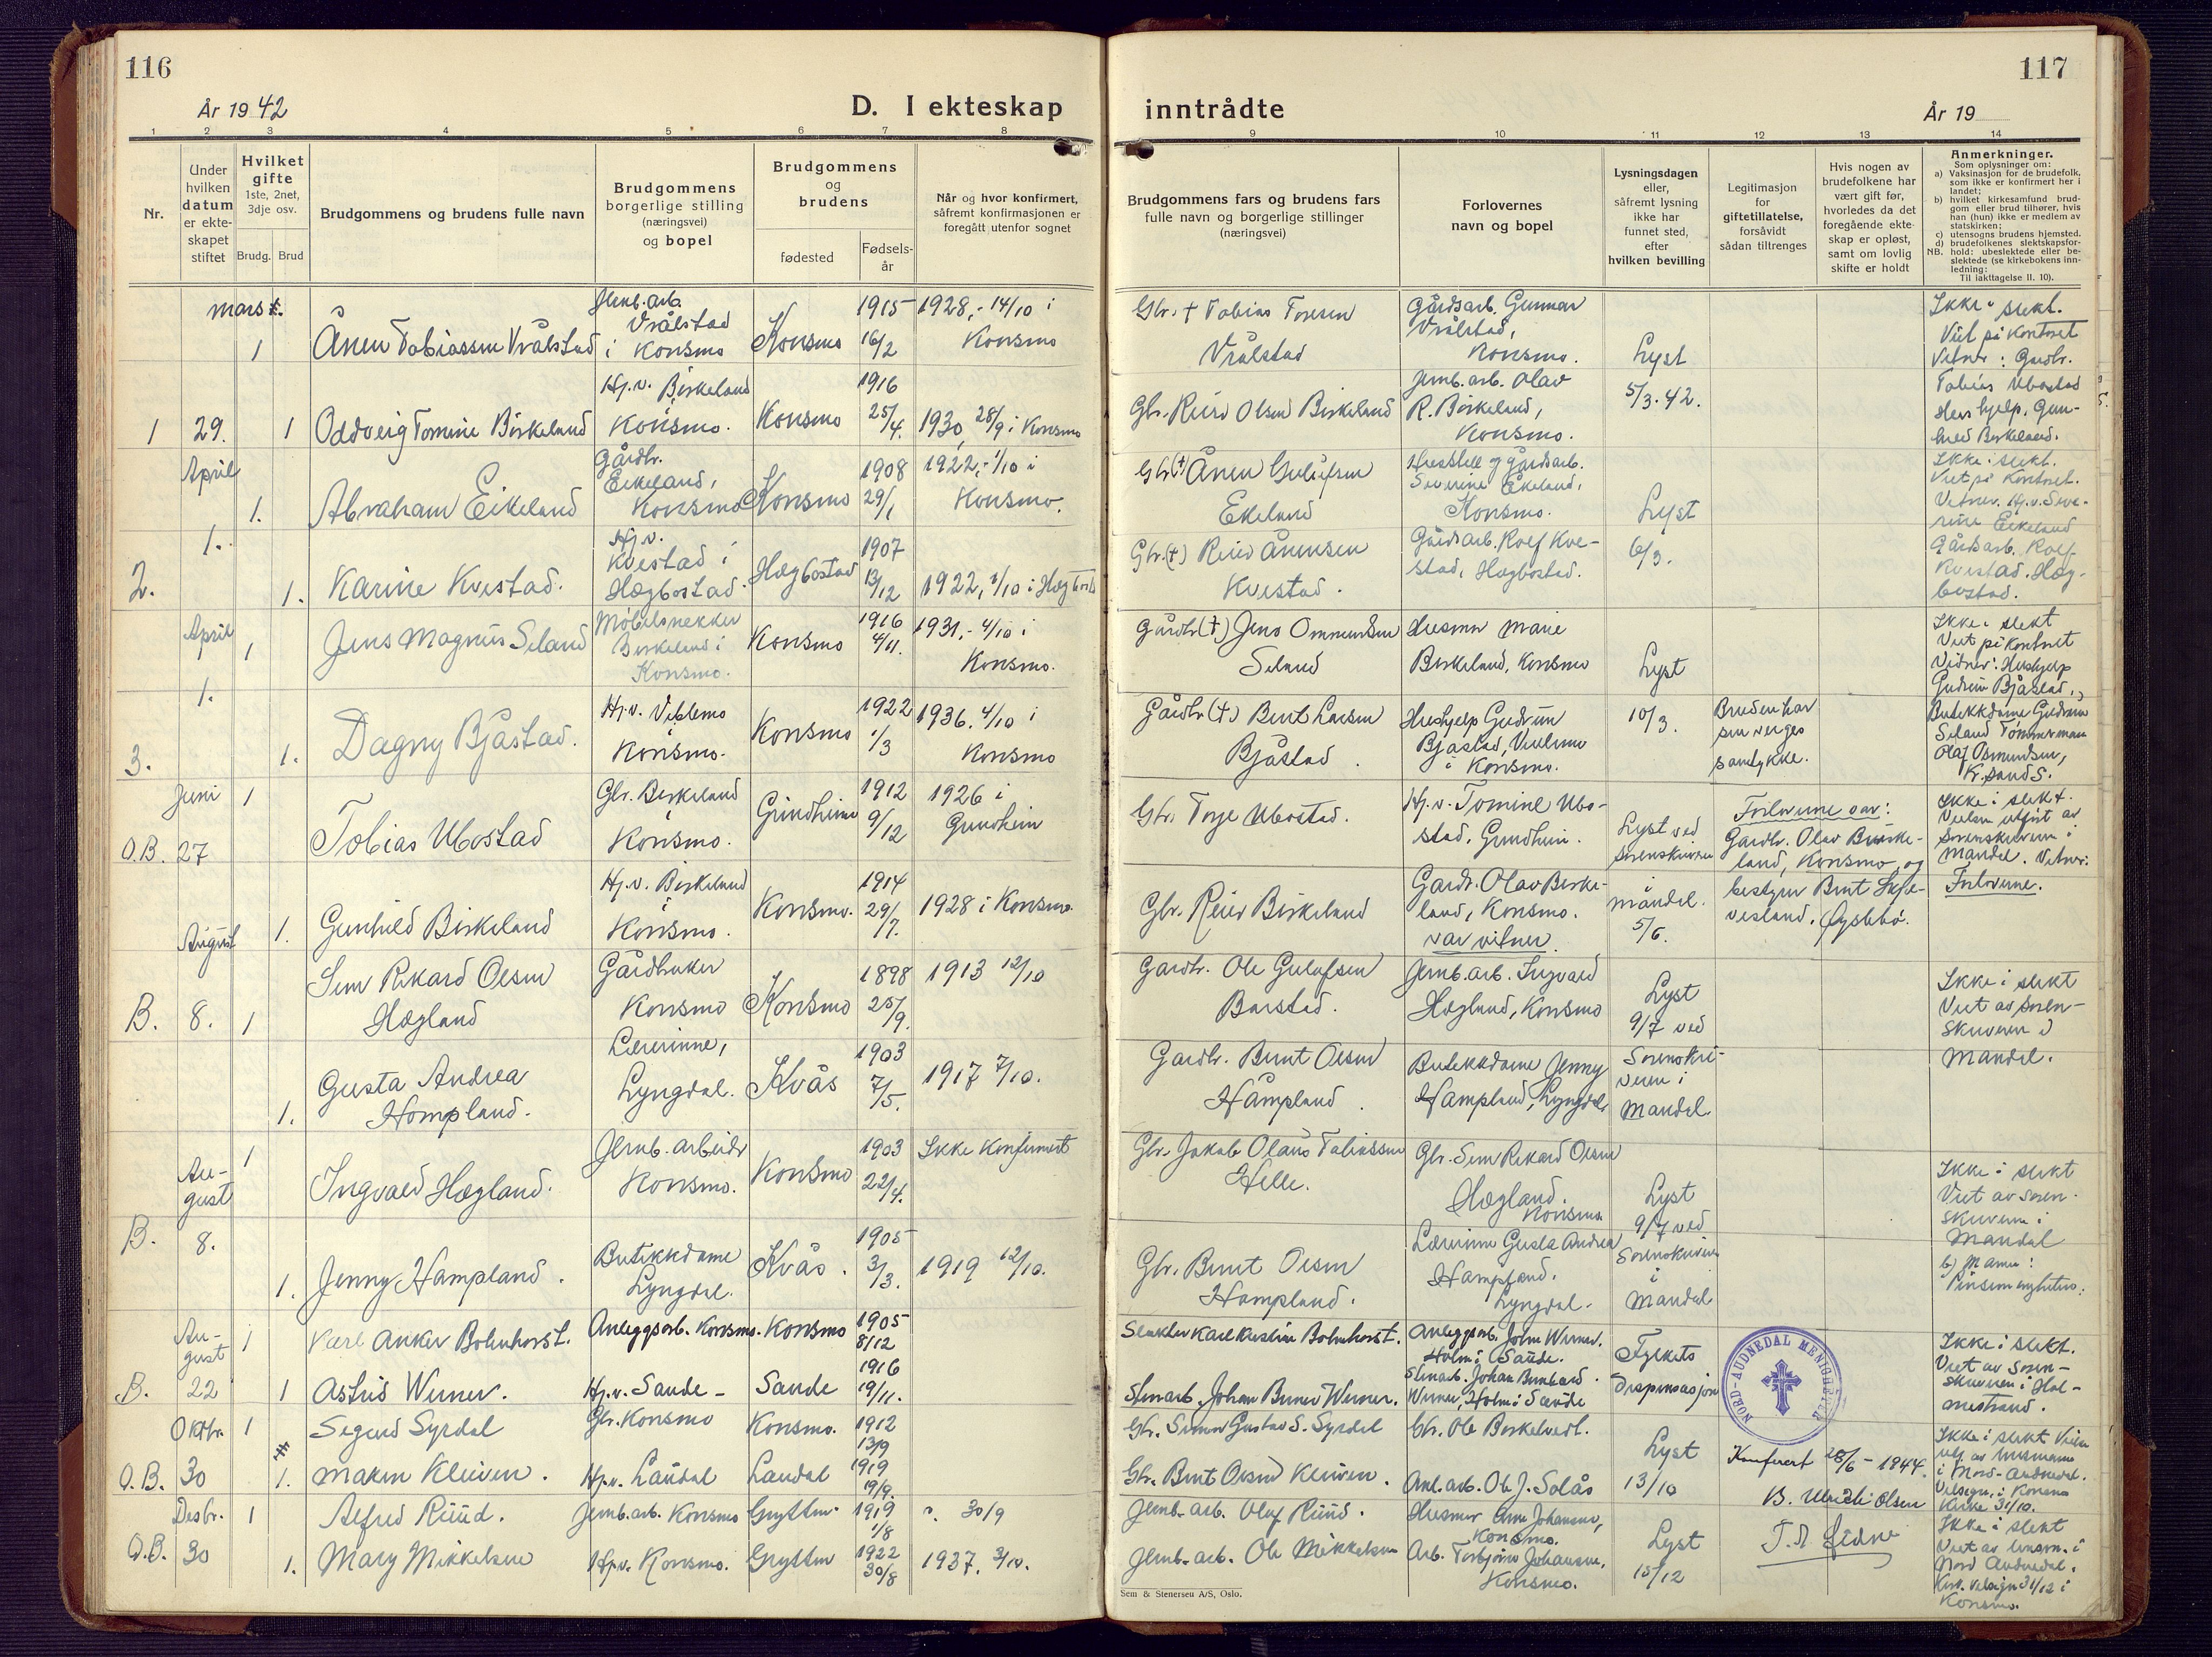 116
117
År 1942
D. I ekteskap inntrådte
År 19
1 2 3 4 5 6 7 8 9 10 11 12 13 14
Nr.
Under
hvilken
datum
er ekte-
skapet
stiftet
Hvilket
gifte
1ste, 2net,
3dje osv.
Brudg. Brud
Brudgommens og brudens fulle navn
Brudgommens
borgerlige stilling
(næringsvei)
og bopel
Brudgommens
og
brudens
fødested
Fødsels-
år
Når og hvor konfirmert,
såfremt konfirmasjonen er
foregått utenfor sognet
Brudgommens fars og brudens fars
fulle navn og borgerlige stillinger
(næringsvei)
Forlovernes
navn og bopel
Lysningsdagen
eller,
såfremt lysning
ikke har
funnet sted,
efter
hvilken bevilling
Legitimasjon
for
giftetillatelse,
forsåvidt
sådan tiltrenges
Hvis nogen av
brudefolkene har
vært gift før,
hvorledes da det
foregående ekte-
skap er opløst,
samt om lovlig
skifte er holdt
Anmerkninger.
Som oplysninger om:
a) Vaksinasjon for de brudefolk,
som ikke er konfirmert her i
landet;
b) hvilket kirkesamfund brud-
gom eller brud tilhører, hvis
han (hun) ikke er medlem av
statskirken;
c) utensogns brudens hjemsted.
d) brudefolkenes slektskapsfor-
NB. hold: ubeslektede eller be-
slektede (se kirkebokens inn-
ledning:
Til iakttagelse II. 10).
mars
1
Ånen Tobiassen Vrålstad
Jernb.arb.
Vrålstad
i Konsmo
Konsmo
1915
16/2
1928,- 14/10 i
Konsmo
Gbr. † Tobias Toresen
Vrålstad
Gårdsarb. Gunnar
Vrålstad,
Konsmo.
Lyst
5/3.42.
Ikke i slekt.
Viet på Kontoret
Vitner: Gardbr.
Tobias Ubostad
Hushjelp, Gun-
hild Birkeland.
1 29. 1
Oddveig Tomine Birkeland
Hj.v. Birkeland
Konsmo.
Konsmo
1916
25/4.
1930, 28/9 i Konsmo
Gbr. Reier Olsen Birkeland
Jernb.arb. Olav
R. Birkeland,
Konsmo.
April
1.
Abraham Eikeland
Gårdbr.
Eikeland,
Konsmo
Konsmo
1908
29/1
1922,- 1/10 i
Konsmo.
Gbr.(†) Ånen Gulufsen
Ekeland
Severine Ekeland,
Konsmo.
Lyst
6/3.
Ikke i slekt.
Viet på Kontoret.
Vitner. Hj.v. Seve-
rine Eikeland
Gårdsarb. Rolf
Kvestad. Hæg-
bostad.
2. 1. 1.
Karine Kvestad.
Hj.v.
Kvestad i
Hægbostad.
Hægbostad
1907
13/12
1922, 1/10 i Hægbostad
Gbr.(†) Reier Ånensen
Kvestad.
Gårdsarb. Rolf Kve-
stad, Hægbostad.
April
1
Jens Magnus Seland
Møbelsnekker
Birkeland i
Konsmo.
Konsmo
1916
4/11.
1931,- 4/10 i
Konsmo.
Gårdbr(†) Jens Ommundsen
Seland
Husmor Marie
Birkeland, Konsmo
Lyst
10/3.
Ikke i slekt
Viet på Kontoret
Vidner: Hushjelp
Gudrun Bjåstad,
Butekkdame Gudrun
Seland Tømmerman
Olaf Osmundsen,
Kr.sand S.
3. 1. 1.
Dagny Bjåstad.
Hj.v. Viblemo
Konsmo.
Konsmo
1922
1/3
1936. 4/10 i
Konsmo
Gårdbr(†) Bernt Larsen
Bjåstad
Hushjelp Gudrun
Bjåstad,
i Konsmo.
Bruden har
sin verges
samtykke.
Juni
1
O.B. 27
Tobias Ubostad
Gbr. Birkeland
Konsmo.
Grindheim
1912
9/12
1926 i
Grindheim
Gbr. Terje Ubostad.
Hj.v. Tomine Ubo-
stad, Grindheim.
Lyst ved
Sorenskriveren
i
Mandal.
5/6.
Forloverne var:
Gardbr. Olav Birke-
land, Konsmo, og
bestyrer Bernt
Øyslebø.
Ikke i slekt.
Vielsen utført av
Sorenskriveren i
Mandal. Vitner:
Forloverne.
1.
Gunhild Birkeland
Hj.v. Birkeland
Konsmo.
Konsmo.
1914
29/7.
1928 i Konsmo.
Gbr. Reier Birkeland
Gardbr. Olav Birke-
land, Konsmo.
var vitner.
August
B. 8. 1
Sem Rikard Olsen
Hægland
Gårdbruker
Konsmo
Konsmo
1898
25/9.
1913 12/10
Gardbr. Ole Gulufsen
Barstad.
Jernb.arb. Ingvald
Hægland, Konsmo
Lyst
9/7 ved
Sorenskri-
veren i
Mandal.
Ikke i slekt
Viet av Soren-
skriveren i
Mandal.
1.
Gusta Andrea
Hompland.
Lærerinne,
Lyngdal.
Kvås
1903
7/5.
1917 7/10.
Gardbr. Bernt Olsen
Håmpland.
Butekkdame Jenny
Hampland, Lyngdal
Au-
gust
1
B. 8.
Ingvald Hægland.
Jernb.arbeider
Konsmo.
Konsmo
1903
22/4.
Ikke Konfirmert
Gbr. Jakob Olaus Tobiassen
Helle.
Gbr. Sem Rikard Olsen
Hægland.
Konsmo.
Lyst
9/7 ved
Sorenskriveren
i
Mandal
Ikke i slekt
Viet av Soren-
skriveren i
Mandal
b) Mannen:
Pinsemenigheten.
1.
Jenny Hampland.
Butikkdame
Lyngdal.
Kvås.
1905
3/3.
1919 12/10.
Gbr. Bernt Olsen
Hampland.
Lærerinne Gusta Andrea
Hampland.
Lyngdal.
Au-
gust
1
Karl Anker Bohmhorst.
Anleggsarb. Konsmo.
Konsmo
1905
8/12
Slakter Karl Kristian Bohmhorst.
Anleggsarb. John Werner.
Holm i Sande.
Fylkets
Dispensasjon
Ikke i slekt.
Viet av Soren-
skriveren i Hol-
mestrand.
B. 22 1
Astrid Werner.
Hj.v. Sande -
Sande
1916
19/11.
Stenarb. Johan Bernard Werner.
Stenarb. Johan Bernhard
Werner, Holm i Sande
NORD-AUDNEDAL MENIGHETER
Oktbr. 1
Sigurd Syrdal
Gbr. Konsmo
Konsmo.
1912
13/9
Gbr. Simon Gustav S. Syrdal
Gbr. Ole Birkelved.
Lyst
13/10
Konferert 28/6 - 1944.
B. Ulrich Olsen
Ikke i slekt
i Nord-Audnedal.
Velsign. i Konsmo
Kirke 31/10.
O.B. 30 1.
Maren Kleiven.
Hj.v. Laudal
Laudal
1919
19/9.
Gbr. Bernt Olsen Kleiven.
Anl.arb. Ole J. Solås
Desbr. 1
Alfred Ruud.
Jernb.arb. Konsmo
Gryttn.
1919
1/8
30/9
Jernb.arb. Oluf Ruud.
Husmor Anne Johansen,
Konsmo.
Lyst
15/12
Ikke i slekt
Viet av lensm. i
Nord Audnedal.
Kirk. velsign 31/12 i
Konsmo.
O.B. 30 1.
Mary Mikkelsen
Hj.v. Konsmo.
Grytten
1922
30/8
1937. 3/10.
Jernb.arb. Ole Mikkelsen
Arb. Torbjørn Johansen,
Konsmo.
Sem & Stenersen A/S, Oslo.